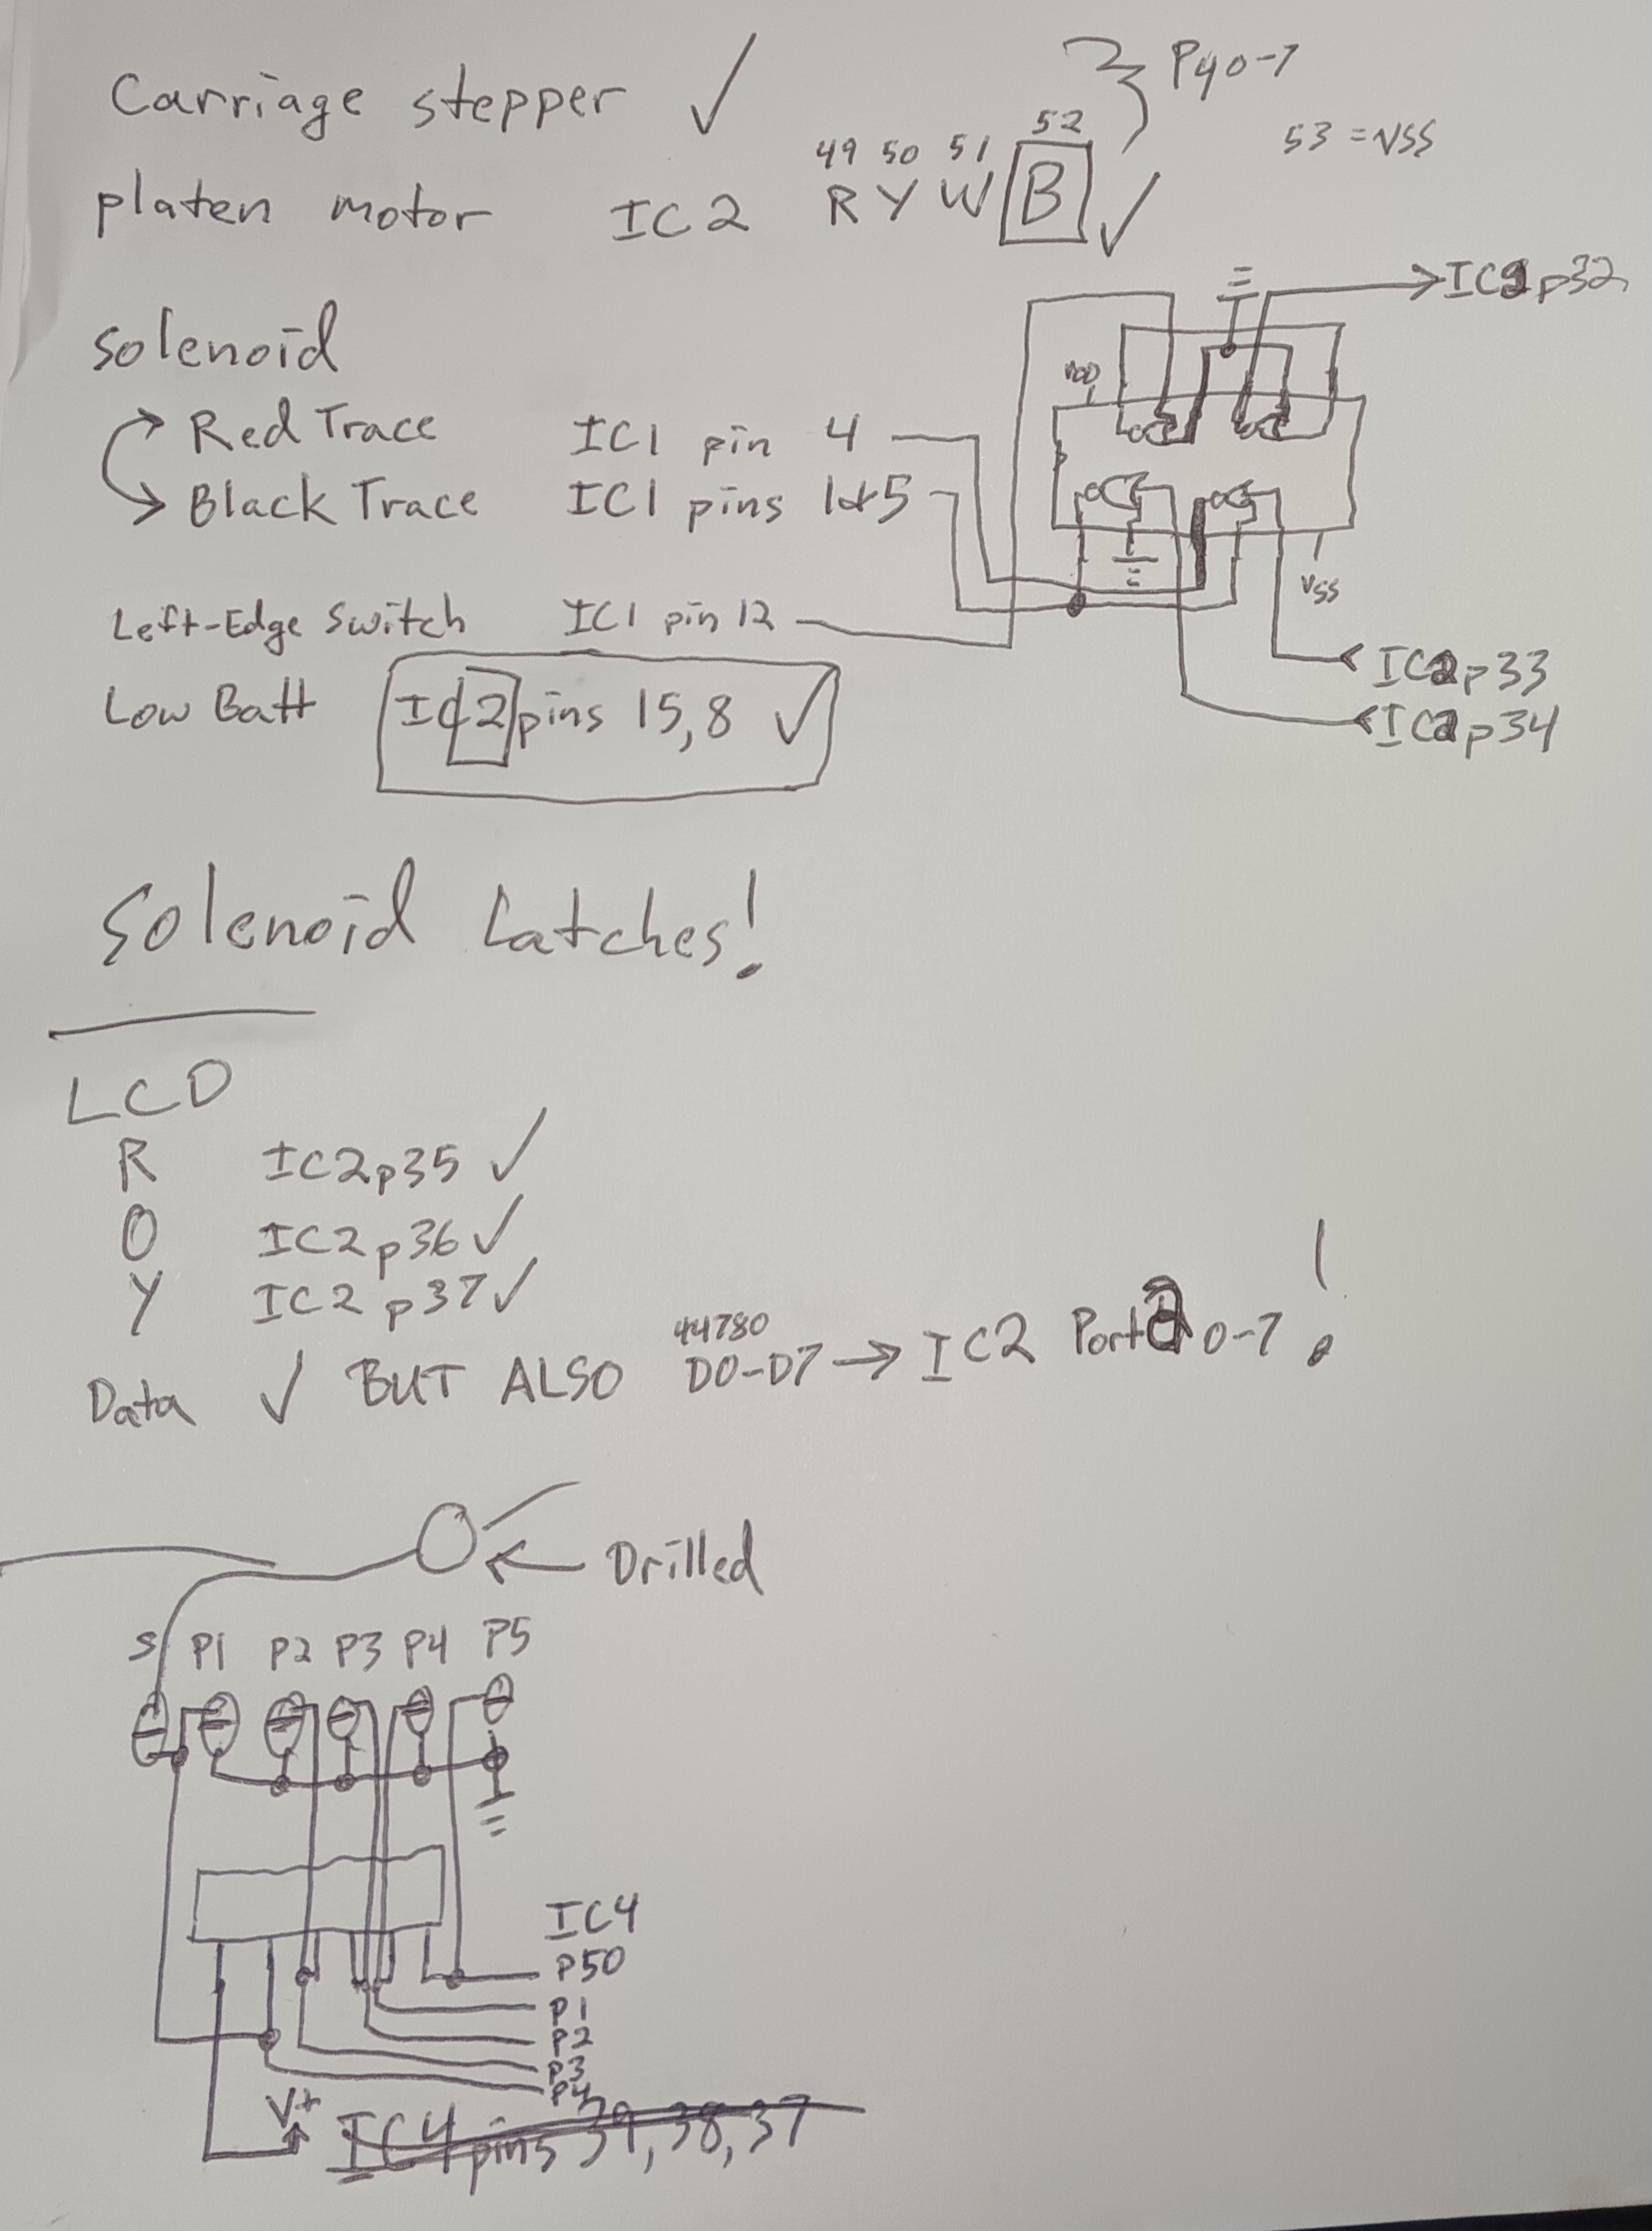 Carriage stepper ✓
P40-7
53 = VSS
49 50 51 52
platen motor IC2 R Y W B ✓
solenoid
Red Trace IC1 pin 4
Black Trace IC1 pins 1&5
Left-Edge Switch IC1 pin 12
Low Batt IC2 pins 15,8 ✓
IC2p32
VDD
VSS
IC2p33
IC2p34
Solenoid Latches!
LCD
R IC2p35 ✓
O IC2p36 ✓
Y IC2p37 ✓
44780
Data ✓ BUT ALSO D0-D7 → IC2 Port 0-7!
← Drilled
S P1 P2 P3 P4 P5
IC4
P50
P1
P2
P3
P4
V+
IC4 pins 39, 38, 37